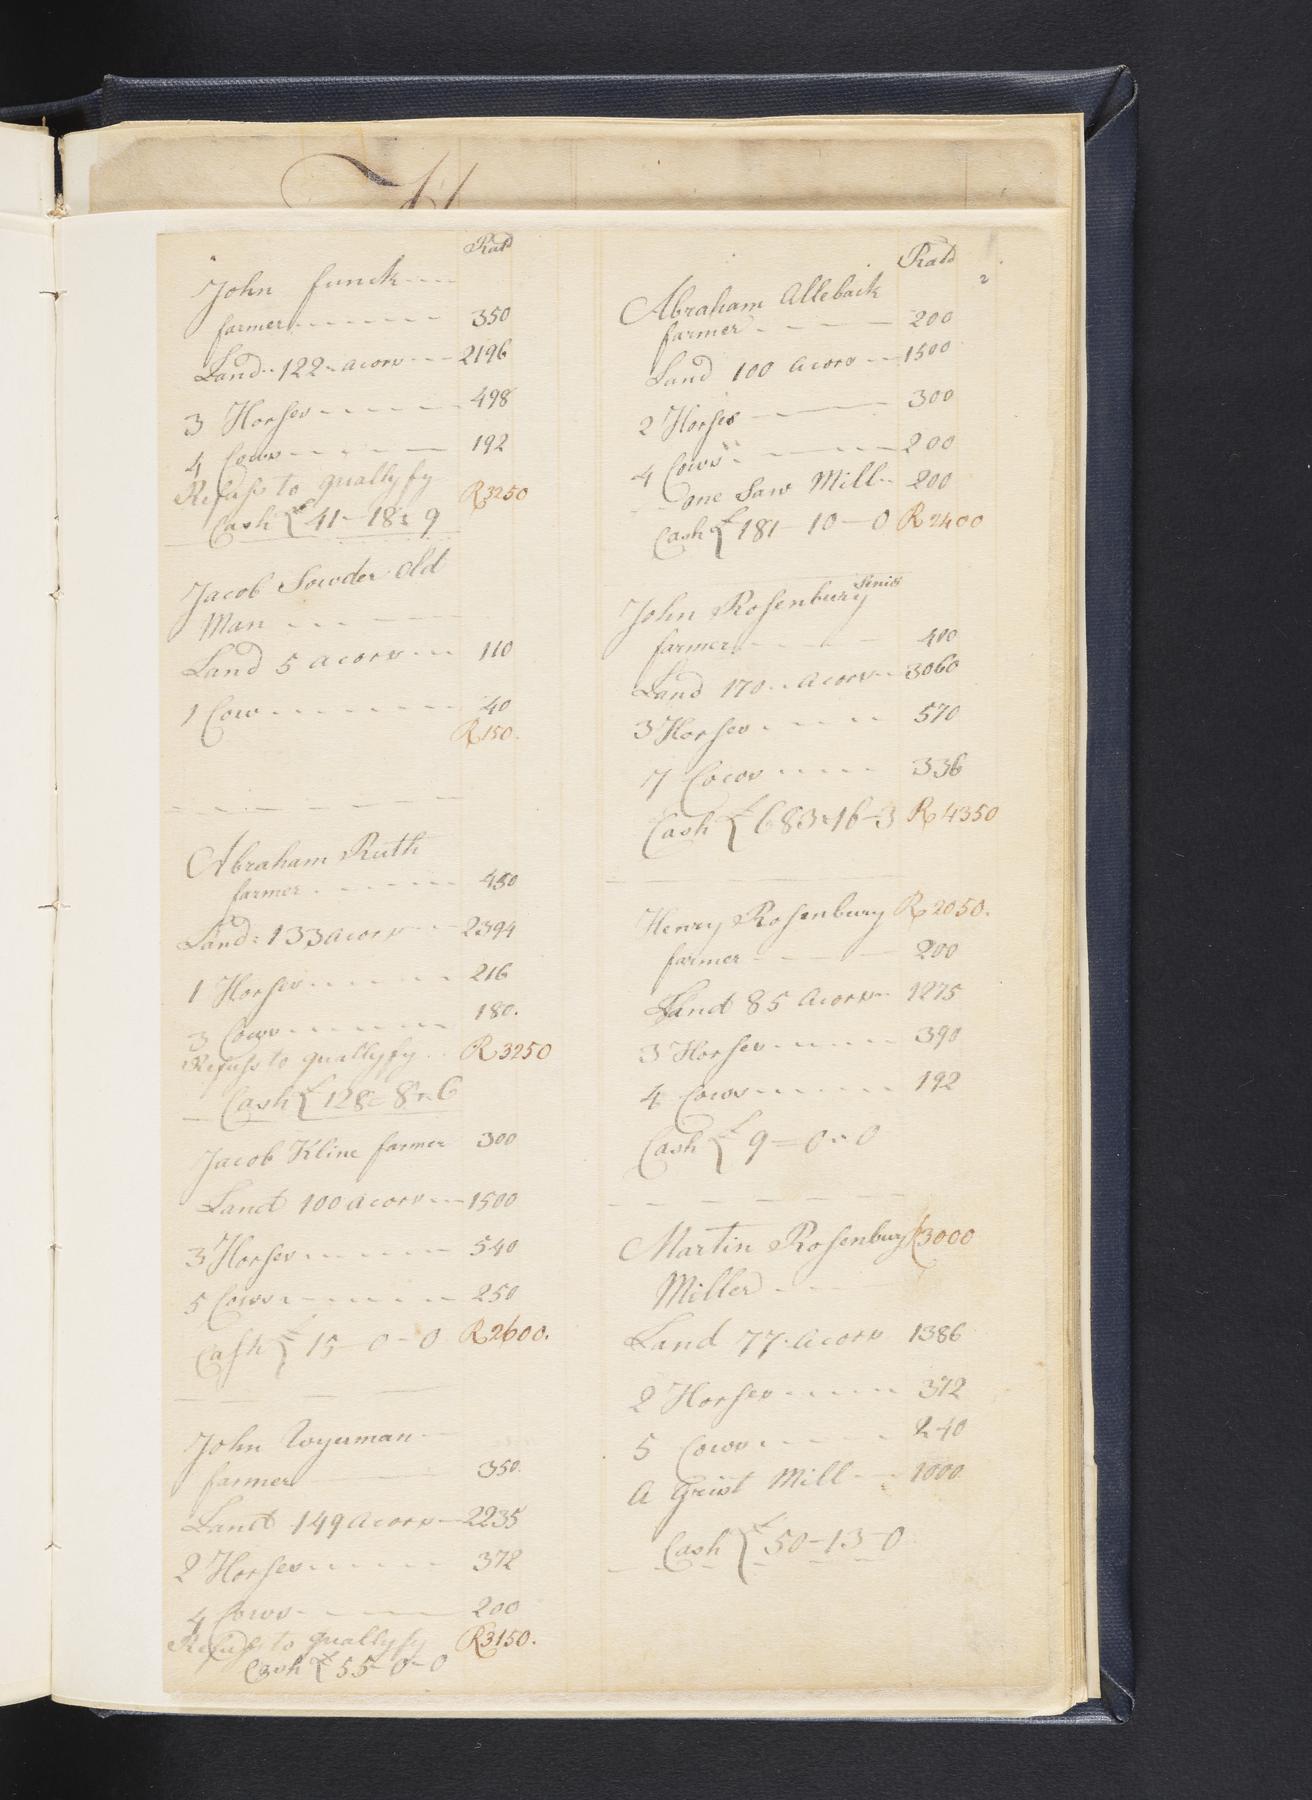 Rats
John funck
farmer 350
Land 122 acors 2196
3 Horses 498
4 Cows 192
Refuse to quallyfy R3250
Cash £ 41-18-9
Jacob Sowder Old
Man
Land 5 acors 110
1 Cow 40
R150.
Abraham Ruth
farmer 450
Land 133 acors 2394
1 Horses 216
3 Cows 180.
Refuse to quallyfy R3250
Cash £ 128-8-6
Jacob Kline farmer 300
Land 100 acors 1500
3 Horses 540
5 Cows 250
Cash £ 15-0-0 R2600.
John Wyerman
farmer 350.
Land 149 acors 2235
2 Horses 372
4 Cows 200
Refuse to quallyfy R3150.
Cash £ 55-0-0
Rats
2
Abraham Alleback
farmer 200
Land 100 acors 1500
2 Horses 300
4 Cows 200
one Saw Mill 200
Cash £ 181-10-0 R2400
John Rosenbury Senior
farmer 400
Land 170 acors 3060
3 Horses 570
7 Cows 336
Cash £ 683-16-3 R4350
Henry Rosenbury R2050.
farmer 200
Land 85 acors 1275
3 Horses 390
4 Cows 192
Cash £ 9-0-0
Martin Rosenbury R3000
Miller
Land 77 acors 1386
2 Horses 372
5 Cows 240
a Grist Mill 1000
Cash £ 50-13-0